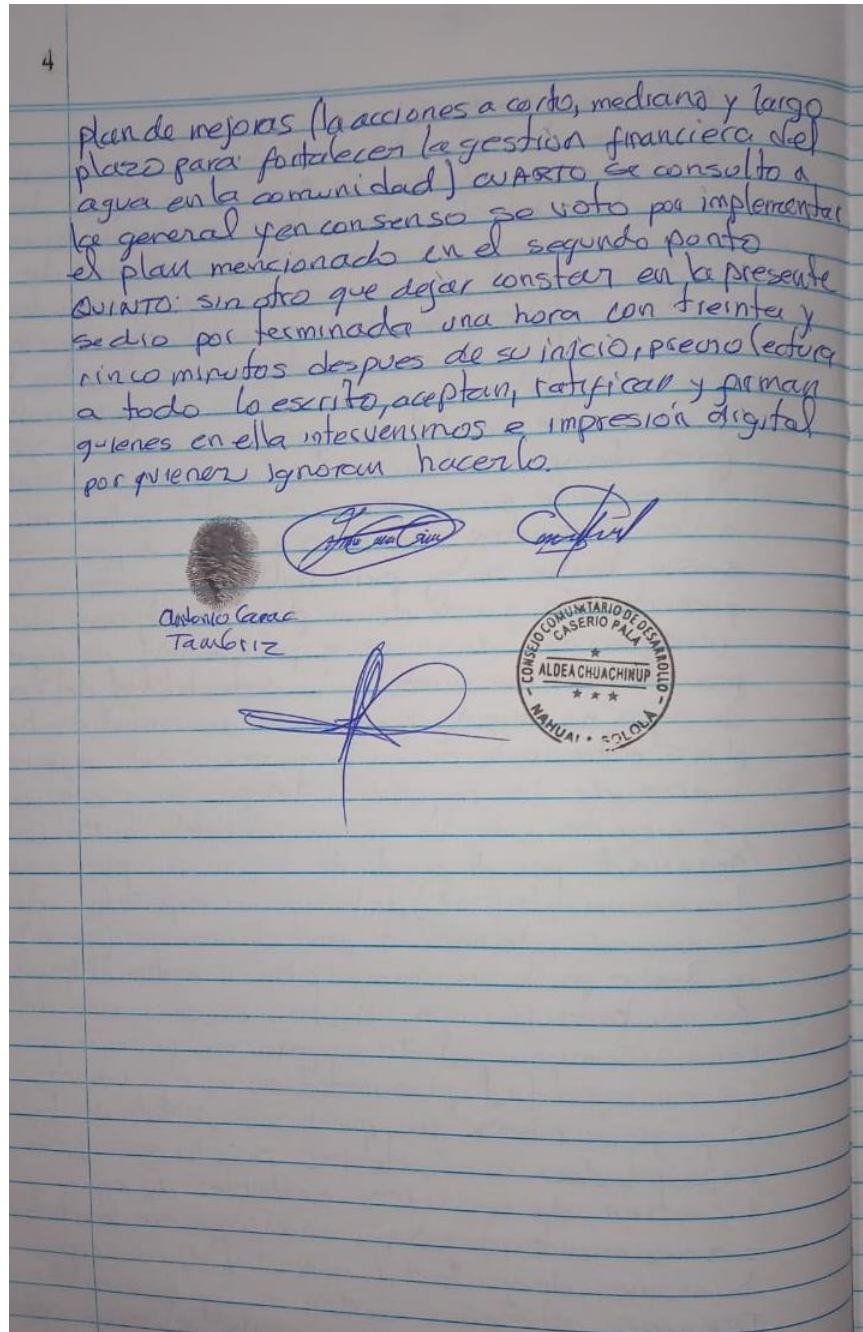 4
plan de mejoras (la acciones a corto, mediano y largo
plazo para fortalecer la gestión financiera del
agua en la comunidad) CUARTO se consulto a
la general y en consenso se voto por implementar
el plan mencionado en el segundo ponto
QUINTO: sin otro que dejar constar en la presente
se dio por terminada una hora con treinta y
cinco minutos despues de su inicio, previo lectura
a todo lo escrito, aceptan, ratifican y firman
quienes en ella intervenimos e impresión digital
por quienes ignoran hacerlo.
Antonio
Tambriz
CONSEJO COMUNITARIO DE DESARROLLO
CASERIO PALA
ALDEA CHUACHINUP
NAHUALA • SOLOLÁ